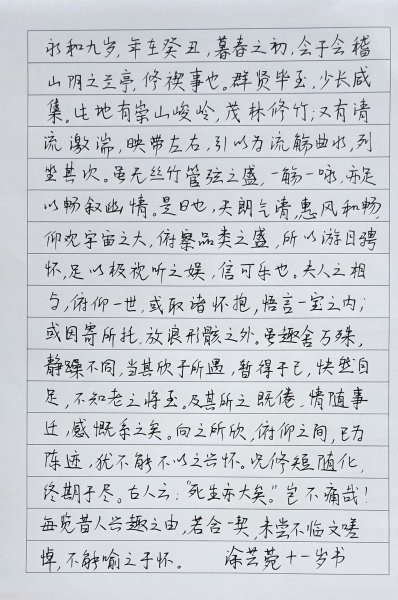 永和九岁,年在癸丑,暮春之初,会于会稽
山阴之兰亭,修禊事也。群贤毕至,少长咸
集。此地有崇山峻岭,茂林修竹;又有清
流激湍,映带左右,引以为流觞曲水,列
坐其次。虽无丝竹管弦之盛,一觞一咏,亦足
以畅叙幽情。是日也,天朗气清,惠风和畅,
仰观宇宙之大,俯察品类之盛,所以游目骋
怀,足以极视听之娱,信可乐也。夫人之相
与,俯仰一世,或取诸怀抱,悟言一室之内;
或因寄所托,放浪形骸之外。虽趣舍万殊,
静躁不同,当其欣于所遇,暂得于己,快然自
足,不知老之将至。及其所之既倦,情随事
迁,感慨系之矣。向之所欣,俯仰之间,已为
陈迹,犹不能不以之兴怀。况修短随化,
终期于尽。古人云:"死生亦大矣。"岂不痛哉!
每览昔人兴趣之由,若合一契,未尝不临文嗟
悼,不能喻之于怀。 涂芸菀 十一岁书